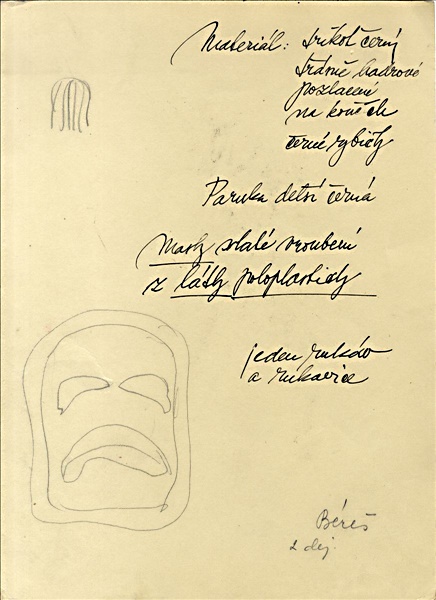 Materiál: trikot černý
hadrové
pozlacení
na koncích
černé rybičky
Paruka delší černá
Masky zlaté vroubení
z látky poloplasticky
jeden rukáv
a rukavice
Béreš
2 dej.